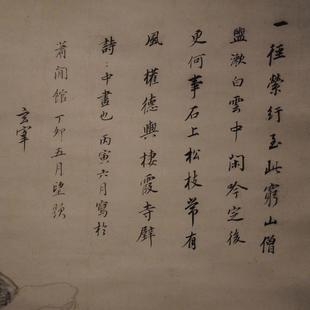 一徑縈紆至此窮山僧
盥漱白雲中閑吟定後
更何事石上松枝常有
風權德輿棲霞寺壁
詩中畫也丙寅六月寫於
蕭閒館丁卯五月望題
玄宰